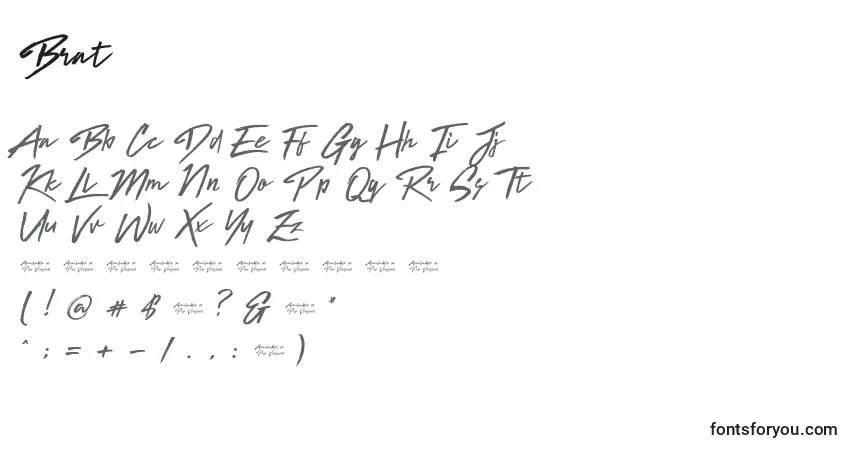 Brat
Aa Bb Cc Dd Ee Ff Gg Hh Ii Jj
Kk Ll Mm Nn Oo Pp Qq Rr Ss Tt
Uu Vv Ww Xx Yy Zz
Available in Pro Version Available in Pro Version Available in Pro Version Available in Pro Version Available in Pro Version Available in Pro Version Available in Pro Version Available in Pro Version Available in Pro Version Available in Pro Version
( ! @ # $ Available in Pro Version ? & Available in Pro Version *
^ ; = + - / . , : Available in Pro Version )
fontsforyou.com